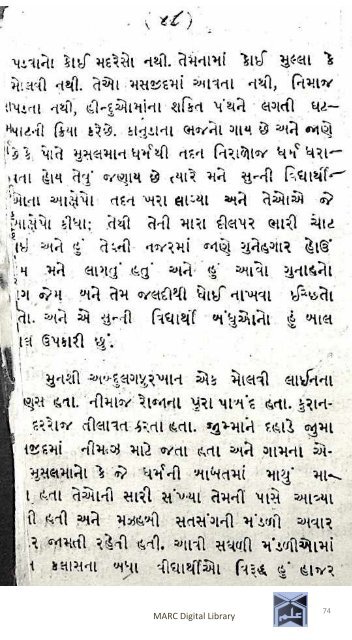 ( ૪૮ )
પડવાનો કોઈ મદરેસો નથી. તેમનામાં કોઈ મુલ્લા કે
મોલવી નથી. તેઓ મસજીદમાં આવતા નથી, નિમાજ
પડતા નથી, હીન્દુઓમાંના શકિત પંથને લગતી ઘટ-
પાટની ક્રિયા કરેછે. કાનુડાના ભજનો ગાય છે અને જાણે
કે પોતે મુસલમાન ધર્મથી તદન નિરાળોજ ધર્મ ધરા-
વતા હોય તેવું જણાય છે ત્યારે મને સુન્ની વિદ્યાર્થી-
ઓના આક્ષેપો તદન ખરા લાગ્યા અને તેઓએ જે
આક્ષેપો કીધા; તેથી તેની મારા દીલપર ભારી ચોટ
અને હું તેની નજરમાં જાણે ગુનેહગાર હોઉં
મ મને લાગતું હતું અને હું આવો ગુનાહનો
ગ જેમ બને તેમ જલદીથી ધોઈ નાખવા ઈચ્છતો
તો. અને એ સુન્ની વિદ્યાર્થી બંધુઓનો હું ખાલ
ઉપકારી છું.
મુનશી અબ્દુલગફુરખાન એક મોલવી લાઈનના
ણસ હતા. નીમાજ રોજાના પુરા પાબંદ હતા. કુરાન-
દરરોજ તીલાવત કરતા હતા. જુમ્માને દહાડે જુમા
જીદમાં નીમાઝ માટે જતા હતા અને ગામના એ-
મુસલમાનો કે જે ધર્મની બાબતમાં માથું મા-
હતા તેઓની સારી સંખ્યા તેમની પાસે આવ્યા
તી હતી અને મઝહબી સતસંગની મંડળી અવાર
ર જામતી રહેતી હતી. આવી સઘળી મંડળીઓમાં
કલાસના બધા વીદ્યાર્થીઓ વિરૂદ્ધ હું હાજર
MARC Digital Library
74